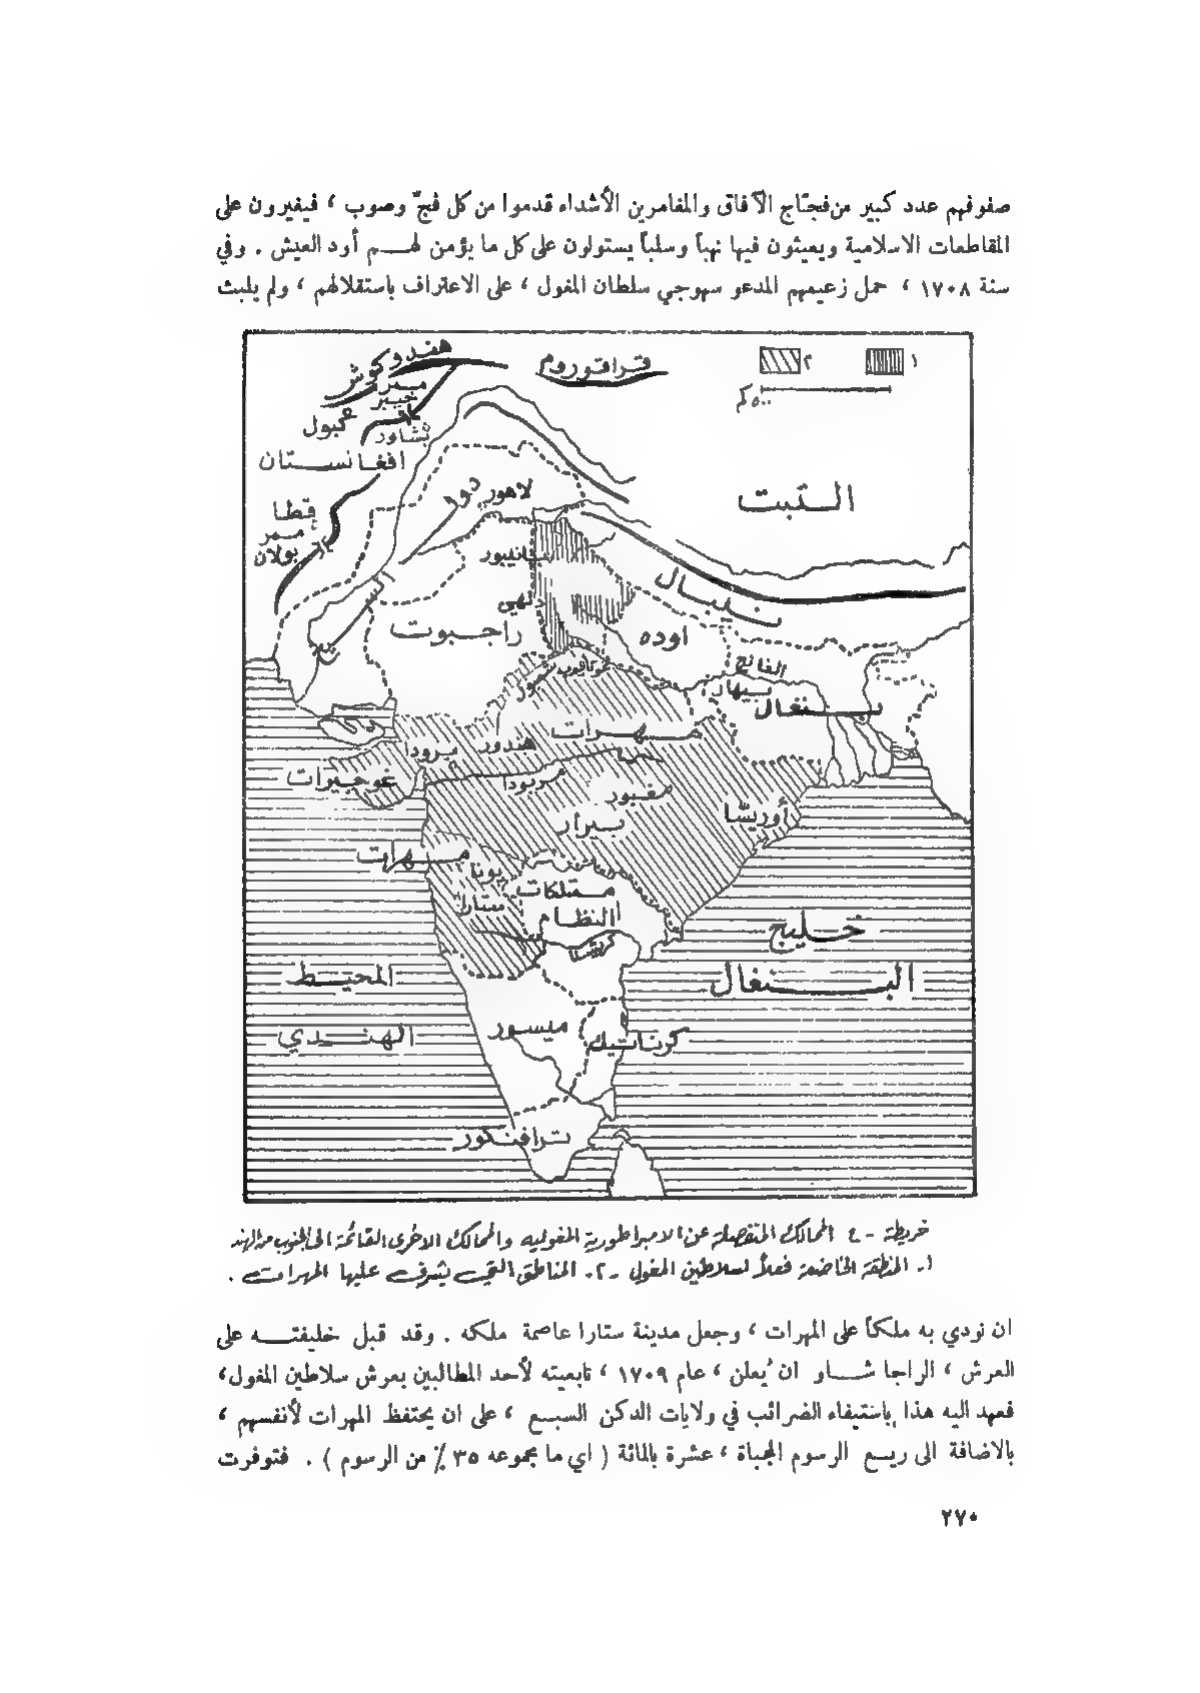 صفوفهم عدد كبير من فجّاج الآفاق والمغامرين الأشداء قدموا من كل فجّ وصوب ، فيغيرون على
المقاطعات الاسلامية ويعيثون فيها نهباً وسلباً يستولون على كل ما يؤمن لهـم أود العيش . وفي
سنة ١٧٠٨ ، حمل زعيمهم المدعو سهوجي سلطان المغول ، على الاعتراف باستقلالهم ، ولم يلبث
١
٢
٥٠٠ كم
هندوكوش
قراقوروم
ممر
خيبر
كبول
بشاور
افغانستان
التبت
لاهور
قطا
ممر
بولان
بانيبور
دلهي
نيبال
راجبوت
اوده
الغانج
بيهار
بنغال
مهرات
هندور
برودا
غوجيرات
نربودا
نغبور
بيرار
أوريسّا
مهرات
بونا
ستارا
ممتلكات
النظام
كرشنا
خليج
البنغال
المحيط
الهندي
ميسور
كرناتيك
ترافنكور
خريطة - ٤ الممالك المنفصلة عن الامبراطورية المغولية والممالك الاخرى القائمة الى الجنوب من الهند
١- المنطقة الخاضعة فعلاً لسلاطين المغول - ٢- المناطق التي يشرف عليها المهرات .
ان نودي به ملكاً على المهرات ، وجعل مدينة ستارا عاصمة ملكه . وقد قبل خليفتـه على
العرش ، الراجا شـاو ان يُعلن ، عام ١٧٠٩ ، تابعيته لأحد المطالبين بعرش سلاطين المغول،
فعهد اليه هذا باستيفاء الضرائب في ولايات الدكن السبع ، على ان يحتفظ المهرات لأنفسهم ،
بالاضافة الى ريع الرسوم المجباة ، عشرة بالمائة ( اي ما مجموعه ٣٥ ٪ من الرسوم ) . فتوفرت
٢٧٠